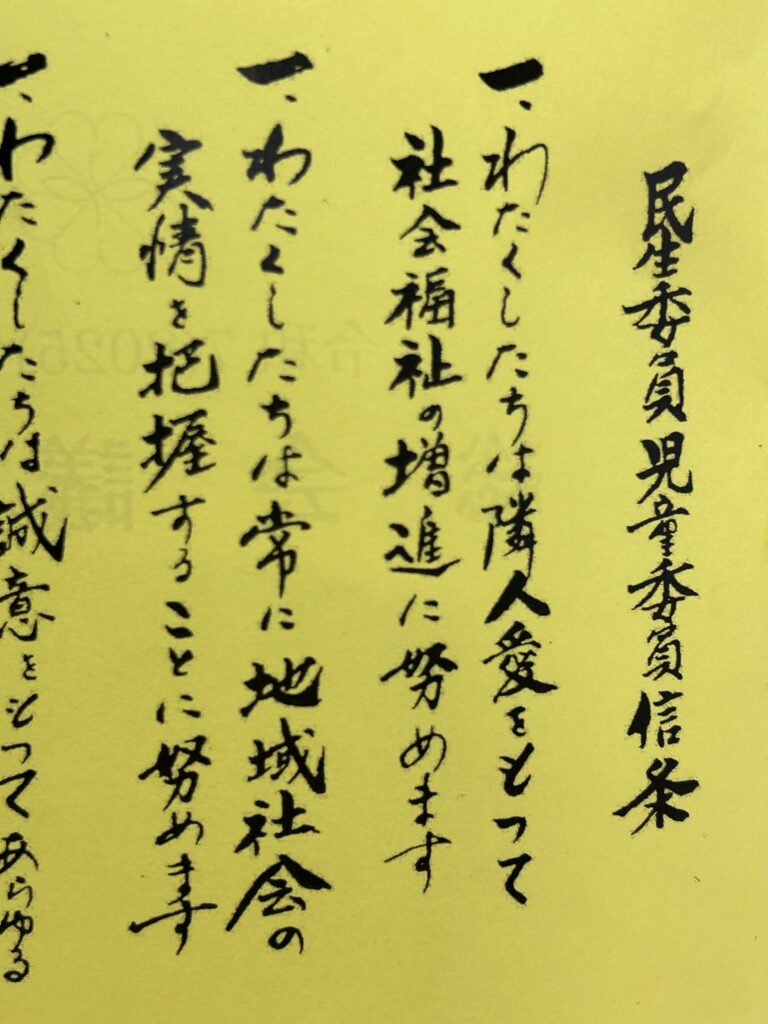 民生委員児童委員信条
一、わたくしたちは隣人愛をもって
社会福祉の増進に努めます
一、わたくしたちは常に地域社会の
実情を把握することに努めます
一、わたくしたちは誠意をもってあらゆる